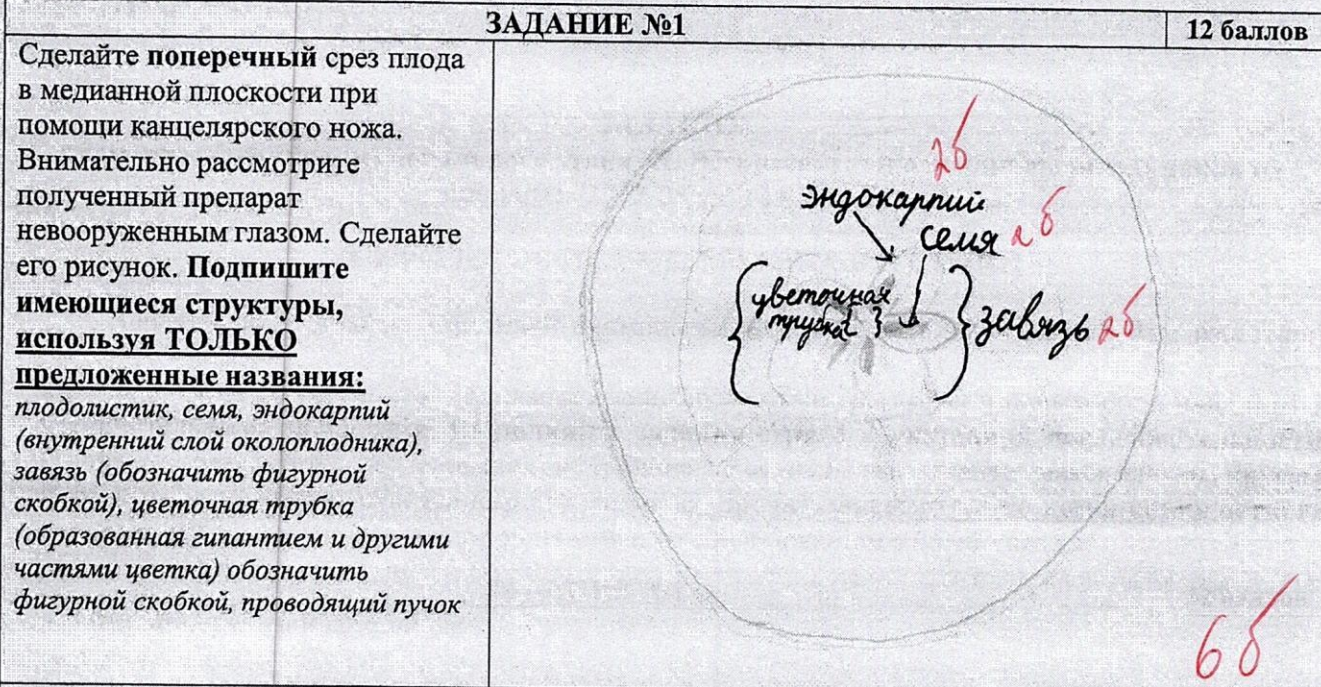 ЗАДАНИЕ №1
12 баллов
Сделайте поперечный срез плода
в медианной плоскости при
помощи канцелярского ножа.
Внимательно рассмотрите
полученный препарат
невооруженным глазом. Сделайте
его рисунок. Подпишите
имеющиеся структуры,
используя ТОЛЬКО
предложенные названия:
плодолистик, семя, эндокарпий
(внутренний слой околоплодника),
завязь (обозначить фигурной
скобкой), цветочная трубка
(образованная гипантием и другими
частями цветка) обозначить
фигурной скобкой, проводящий пучок
2б
эндокарпий
семя 2б
цветочная
трубка
завязь 2б
6б